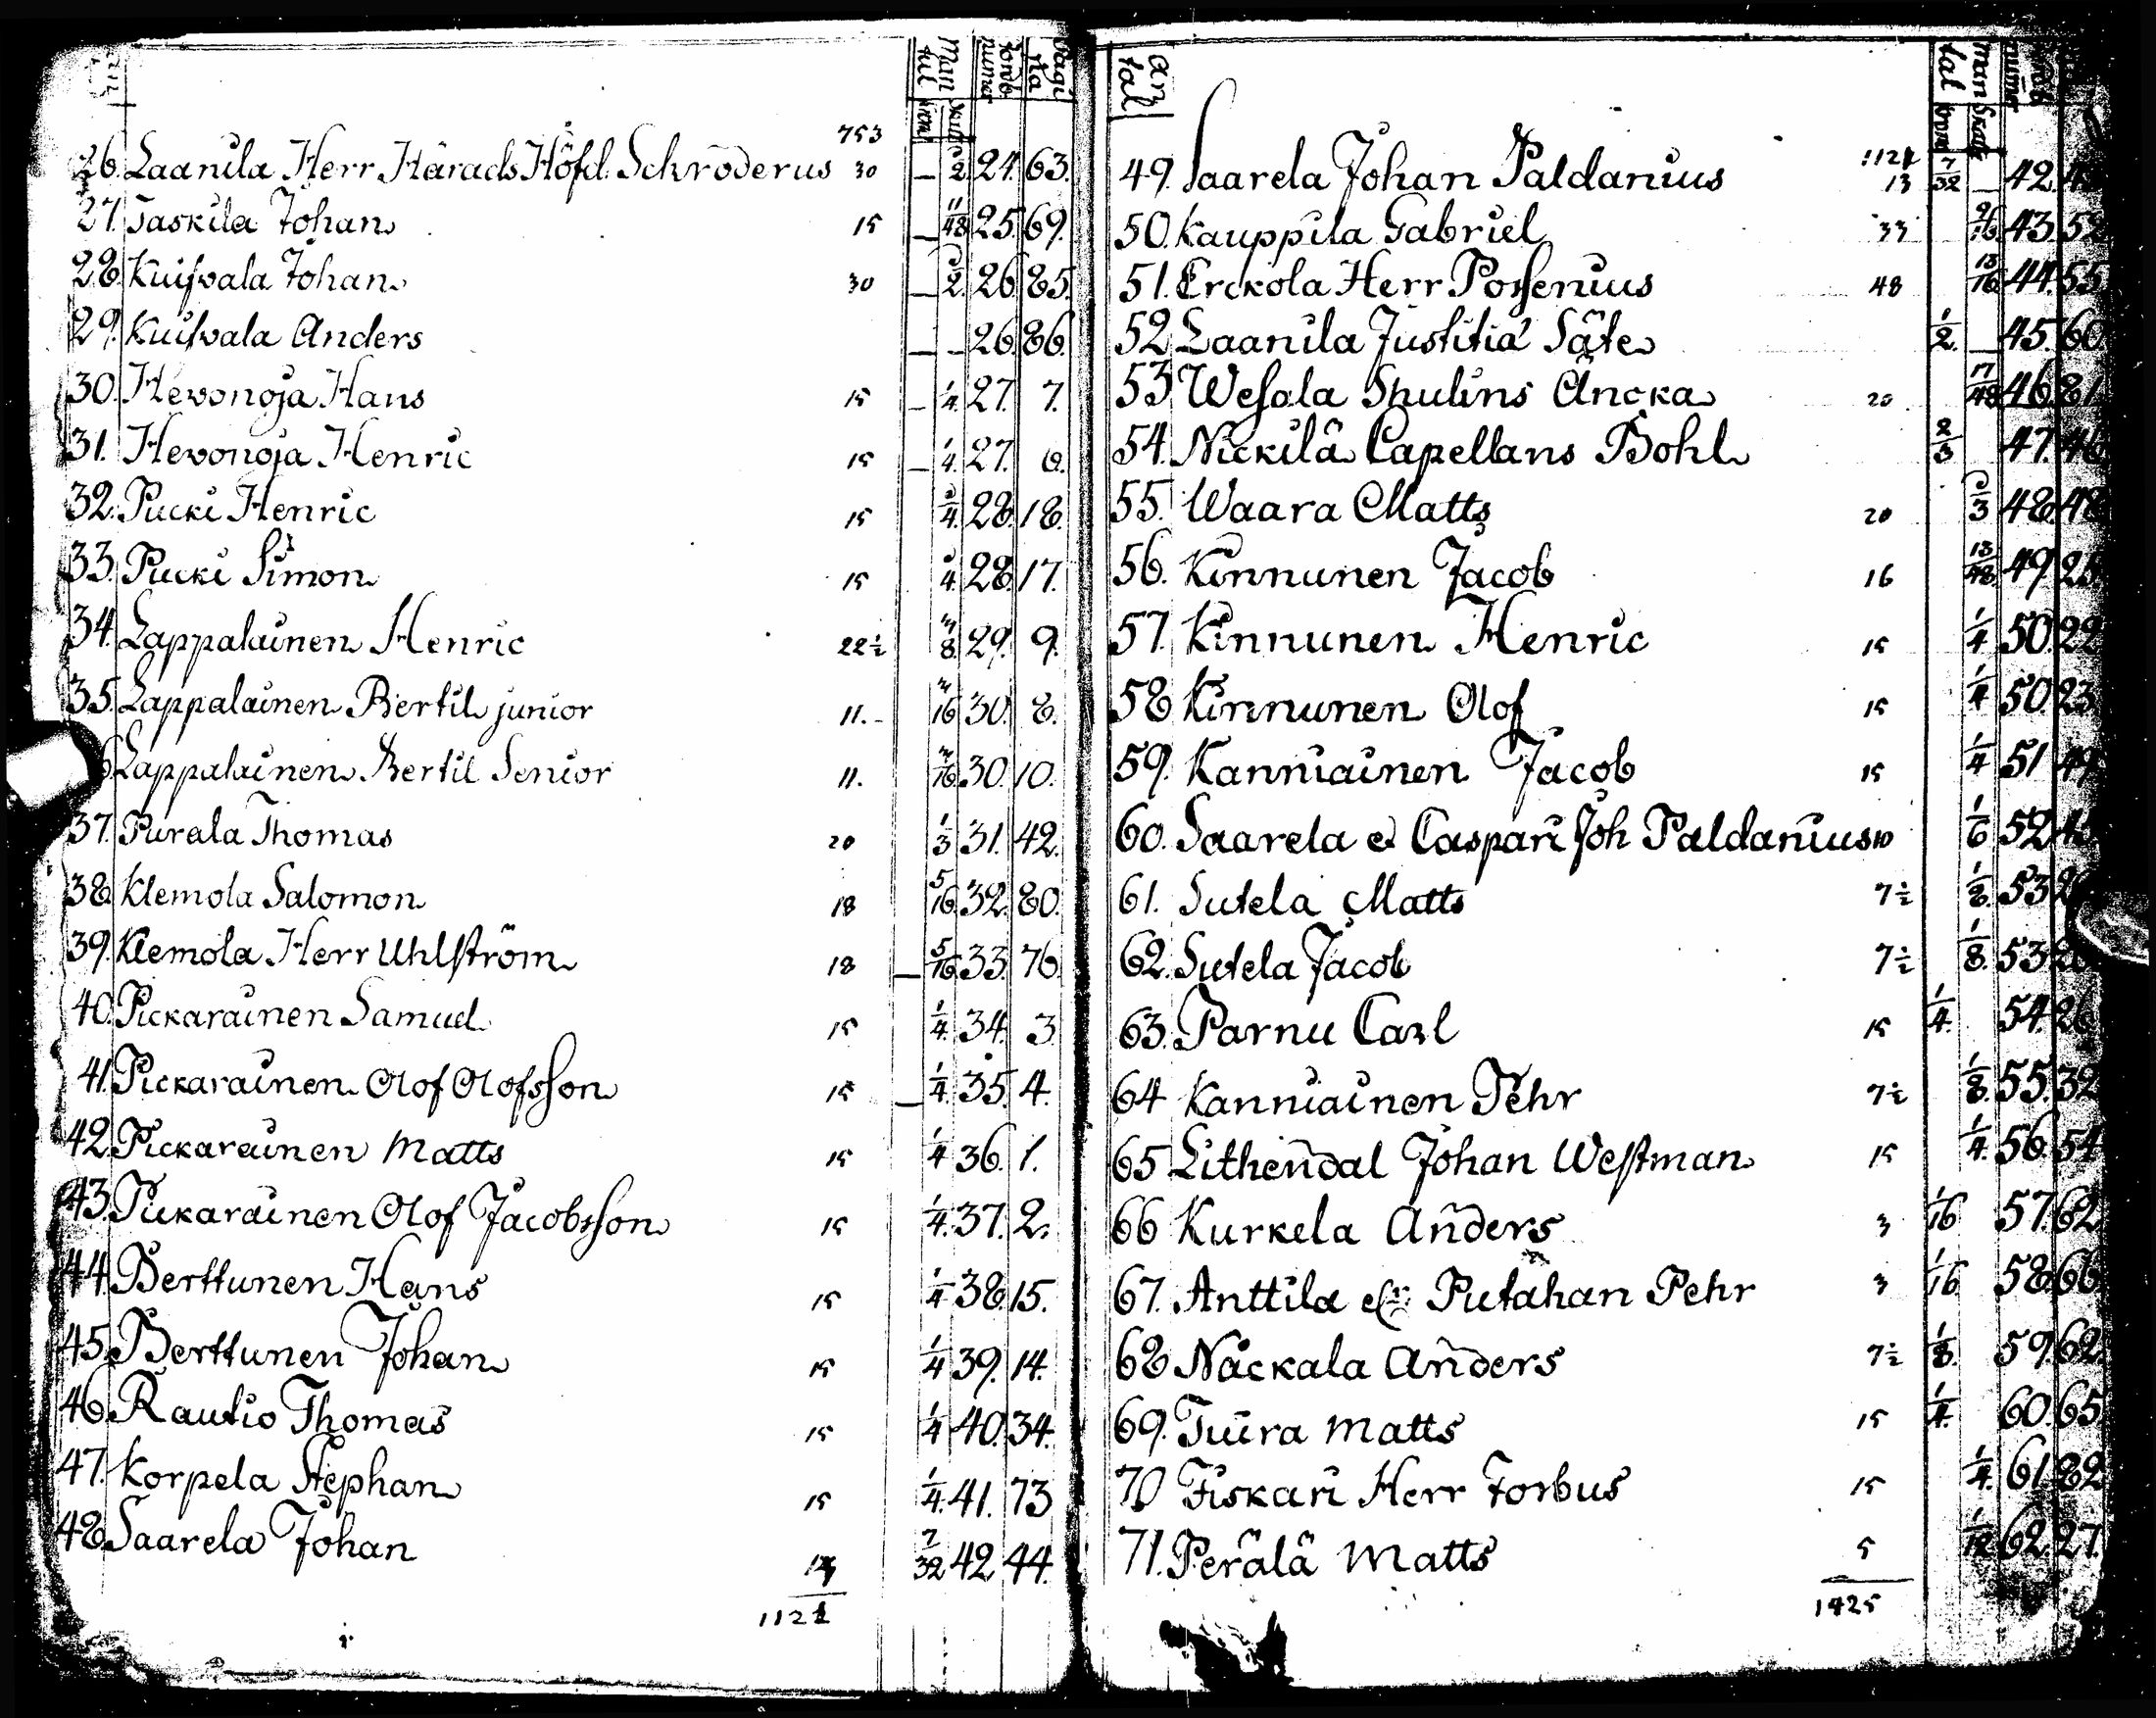 Man tal
Krono Skatt
Jordb. numer
Pagi na
753
26. Laanila Herr Härads Höfd. Schroderus 30 — 1/2. 24. 63.
27. Taskila Johan 15 — 11/48 25. 69.
28. Kuifvala Johan 30 — 1/2. 26. 85.
29. Kuifvala Anders — — 26. 86.
30. Hevonoja Hans 15 — 1/4. 27. 7.
31. Hevonoja Henric 15 — 1/4. 27. 6.
32. Pucki Henric 15 1/4. 28. 18.
33. Pucki Simon 15 1/4. 28. 17.
34. Lappalainen Henric 22½ 3/8. 29. 9.
35. Lappalainen Bertil junior 11. 3/16 30. 8.
6 Lappalainen Bertil Senior 11. 3/16. 30. 10.
37. Purala Thomas 20 1/3 31. 42.
38. Klemola Salomon 18 5/16. 32. 80.
39. Klemola Herr Uhlström 18 — 5/16. 33. 76
40. Pickarainen Samuel 15 1/4. 34. 3.
41. Pickarainen Olof Olofsson 15 — 1/4. 35. 4.
42. Pickarainen Matts 15 1/4 36. 1.
43. Pickarainen Olof Jacobsson 15 1/4. 37. 2.
44. Berttunen Hans 15 1/4 38. 15.
45. Berttunen Johan 15 1/4 39. 14.
46. Rautio Thomas 15 1/4 40. 34.
47. Korpela Stephan 15 1/4. 41. 73
48. Saarela Johan 7/32 42 44.
112
an tal
Man tal
Krono Skatt
numer
112
49. Saarela Johan Paldanius 13 7/32 — 42.
50. Kauppila Gabriel 33 9/16. 43. 52
51. Erckola Herr Possenius 48 13/16. 44. 55
52 Laanila Justitiæ Säte 1/2. — 45. 60
53 Wesala Spulins Äncka 20 17/48 46. 81
54. Nickilä Capellans Bohl 2/3 47. 46
55. Waara Matts 20 1/3 48. 48
56. Kinnunen Jacob 16 13/48. 49. 25
57. Kinnunen Henric 15 1/4 50. 22
58 Kinnunen Olof 15 1/4 50. 23
59. Kanniainen Jacob 15 1/4 51 49
60. Saarela el Caspari Joh Paldanius 10 1/6 52
61. Sutela Matts 7½ 1/8. 53
62. Sutela Jacob 7½ 1/8. 53
63. Parnu Carl 15 1/4. 54. 26
64 Kanniainen Pehr 7½ 1/8. 55. 32
65 Lithendal Johan Westman 15 1/4. 56. 54
66 Kurkela Anders 3 1/16 57. 62
67. Anttila elr: Putahan Pehr 3 1/16 58. 66
68 Näckala Anders 7½ 1/8. 59. 62
69. Tuira Matts 15 1/4. 60. 65
70 Fiskari Herr Forbus 15 1/4. 61. 82
71. Perälä Matts 5 1/12 62. 27.
1425